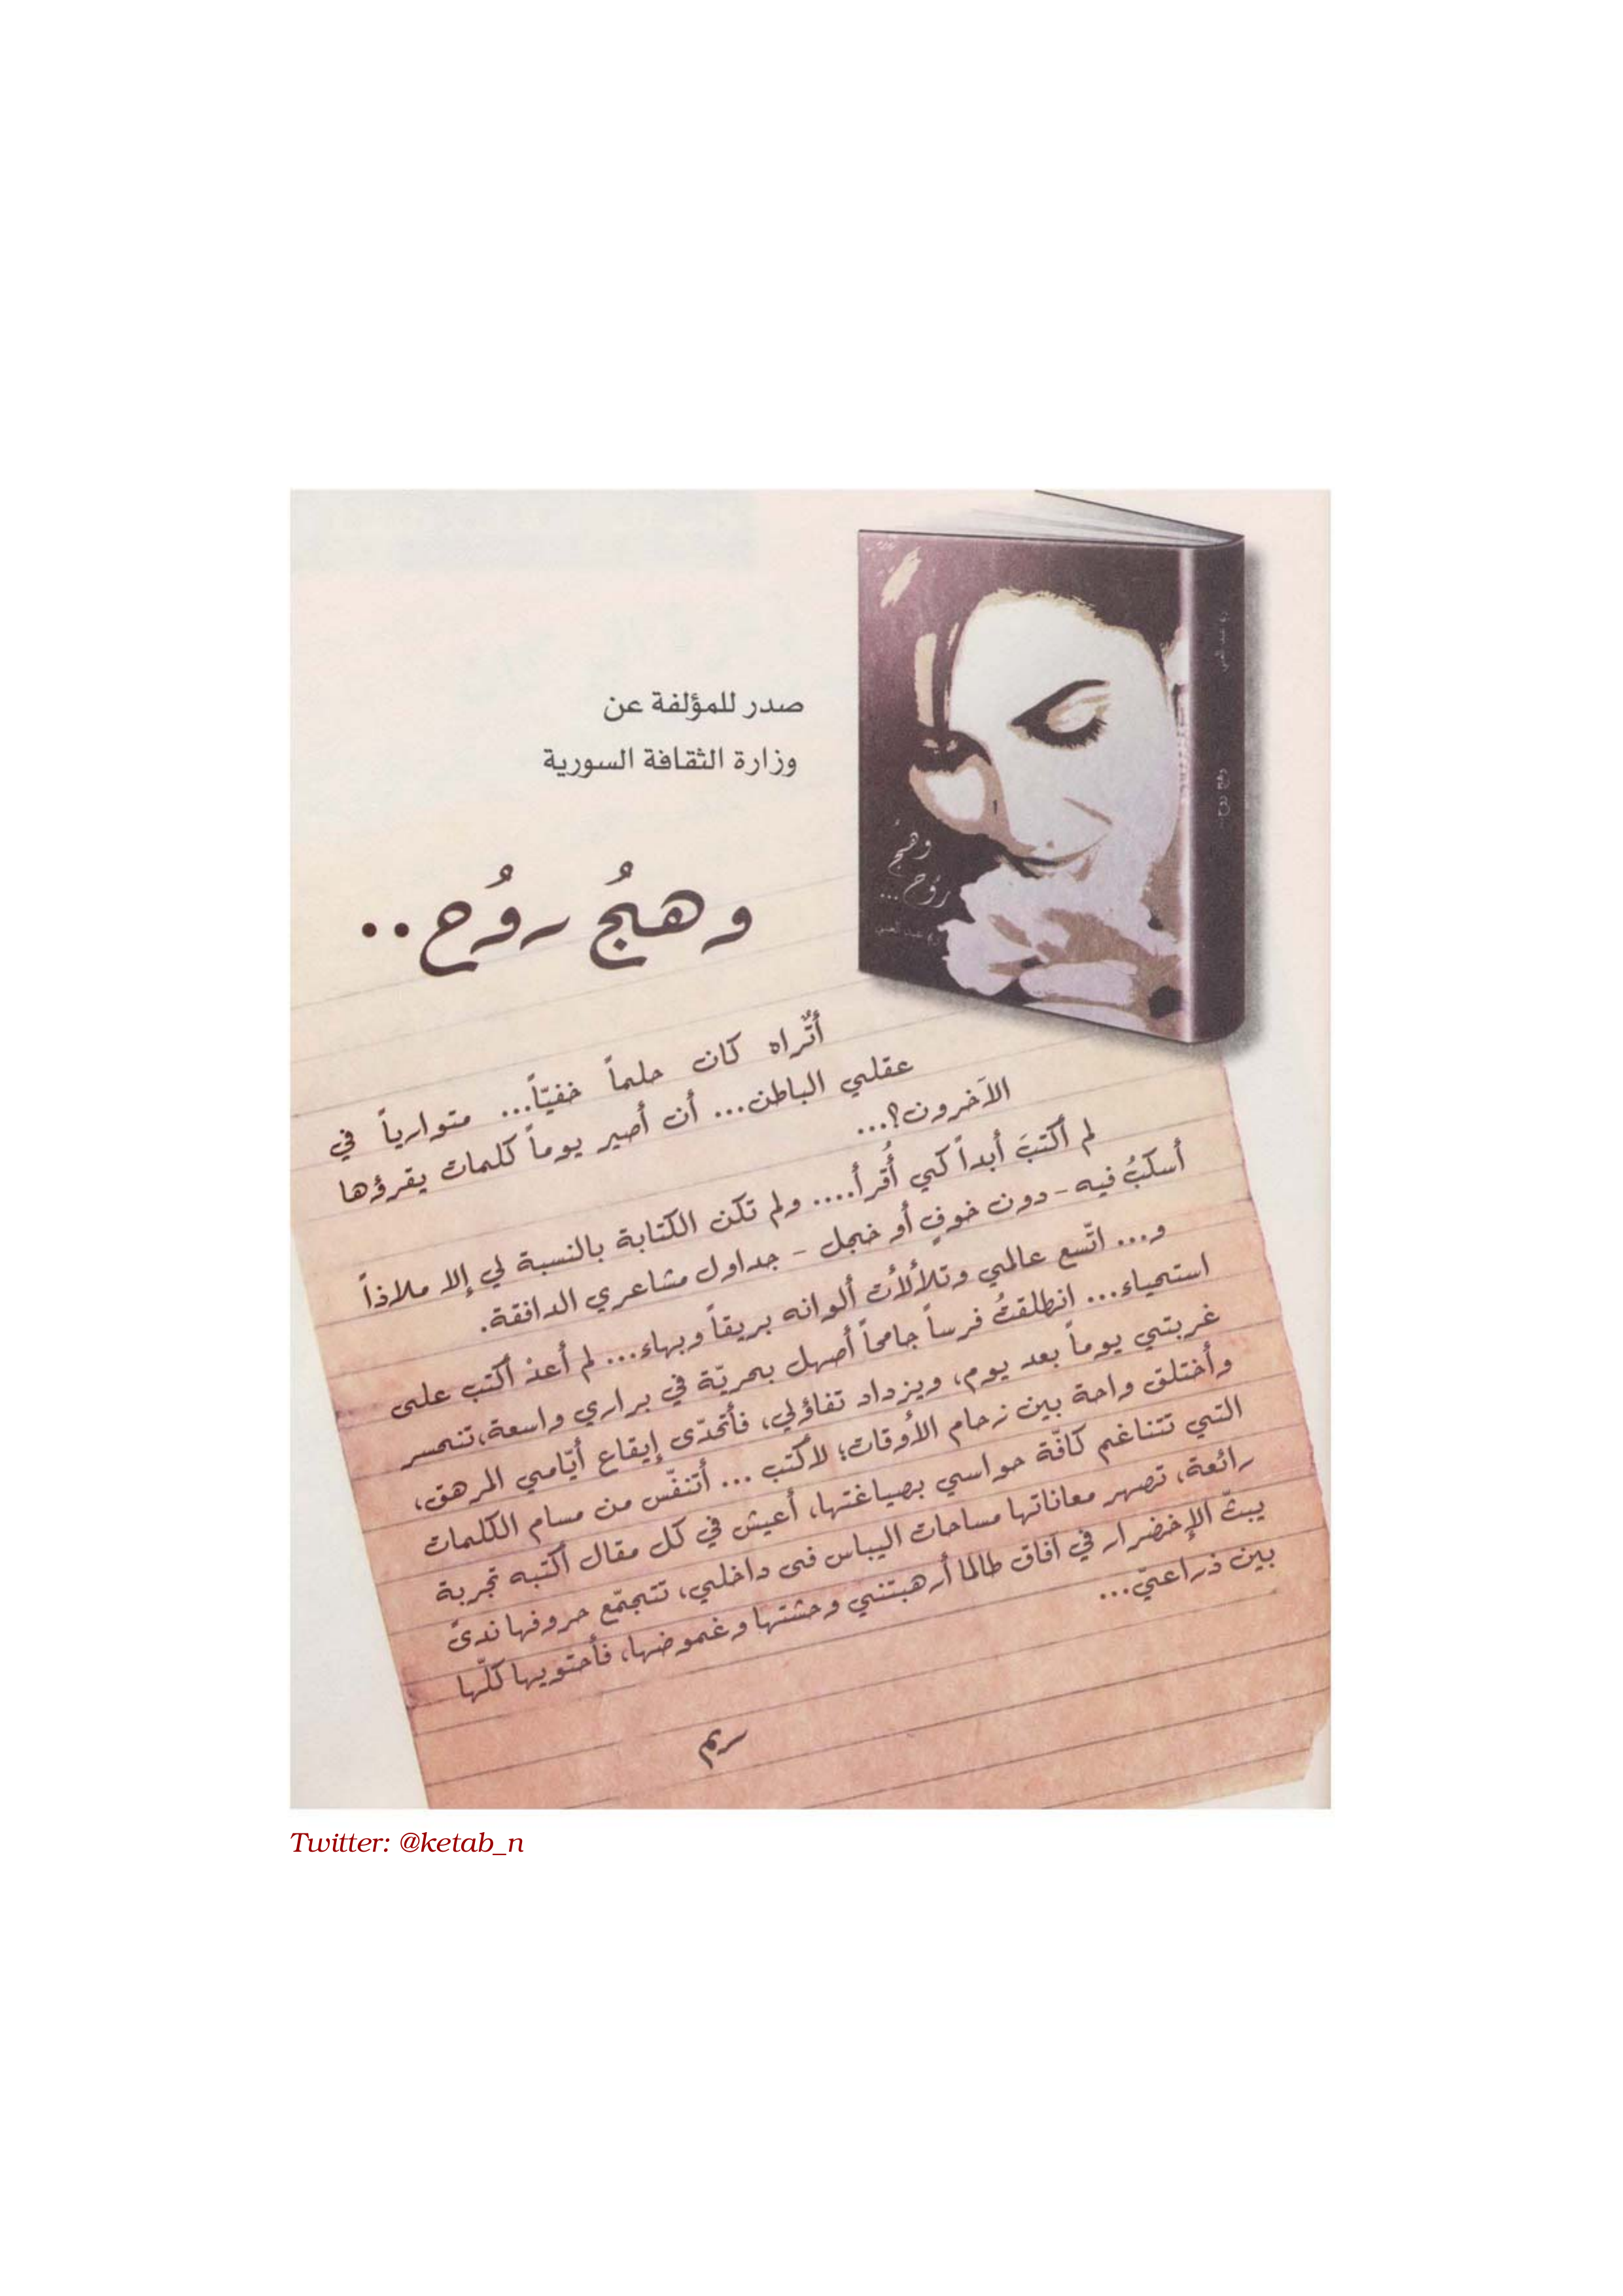 صدر للمؤلفة عن
وزارة الثقافة السورية
وهجُ روُح..
وهجُ
روُح...
وهج روح..
أتُراه كان حلماً خفيّاً... متوارياً في
عقلي الباطن... أن أصير يوماً كلمات يقرؤها
الآخرون؟...
لم أكتبَ أبداً كي أُقرأ.... ولم تكن الكتابة بالنسبة لي إلا ملاذاً
أسكبُ فيه - دون خوفٍ أو خجل - جداول مشاعري الدافقة.
و... اتّسع عالمي وتلألأت ألوانه بريقاً وبهاء... لم أعدْ أكتب على
استحياء... انطلقتُ فرساً جامحاً أصهل بحريّة في براري واسعة، تنحسر
غربتي يوماً بعد يوم، ويزداد تفاؤلي، فأتحدّى إيقاع أيّامي المرهق،
وأختلق واحة بين زحام الأوقات؛ لأكتب ... أتنفّس من مسام الكلمات
التي تتناغم كافّة حواسي بصياغتها، أعيش في كل مقال أكتبه تجربة
رائعة، تصهر معاناتها مساحات اليباس فى داخلي، تتجمّع حروفها ندىً
يبثّ الإخضرار في آفاق طالما أرهبتني وحشتها وغموضها، فأحتويها كلّها
بين ذراعيّ...
ريم
Twitter: @ketab_n